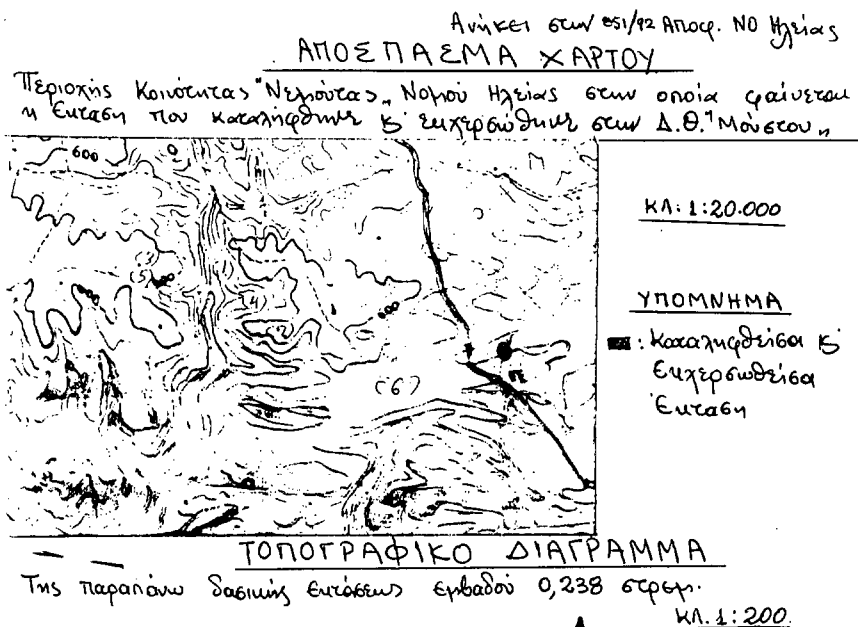 Ανήκει στην 851/92 Αποφ. ΝΟ Ηλείας
ΑΠΟΣΠΑΣΜΑ ΧΑΡΤΟΥ
Περιοχής Κοινότητας "Νεμούτας" Νομού Ηλείας στην οποία φαίνεται
η έκταση που καταλήφθηκε κ' εκχερσώθηκε στην Δ.Θ. "Μούστου"
600
(5)
(4)
600
600
(2)
(6)
ΚΛ: 1:20.000
ΥΠΟΜΝΗΜΑ
: Καταληφθείσα κ'
Εκχερσωθείσα
Έκταση
ΤΟΠΟΓΡΑΦΙΚΟ ΔΙΑΓΡΑΜΜΑ
Της παραπάνω δασικής εκτάσεως εμβαδού 0,238 στρεμ.
ΚΛ. 1:200